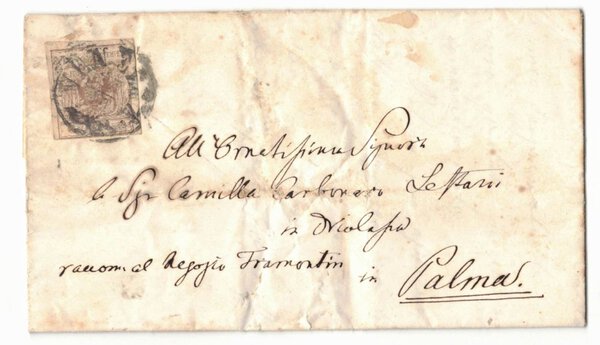 All' Ornatissima Signora
la Sigr Camilla Carbonaro
in
raccom. al Negozio Tramontin in Palma.